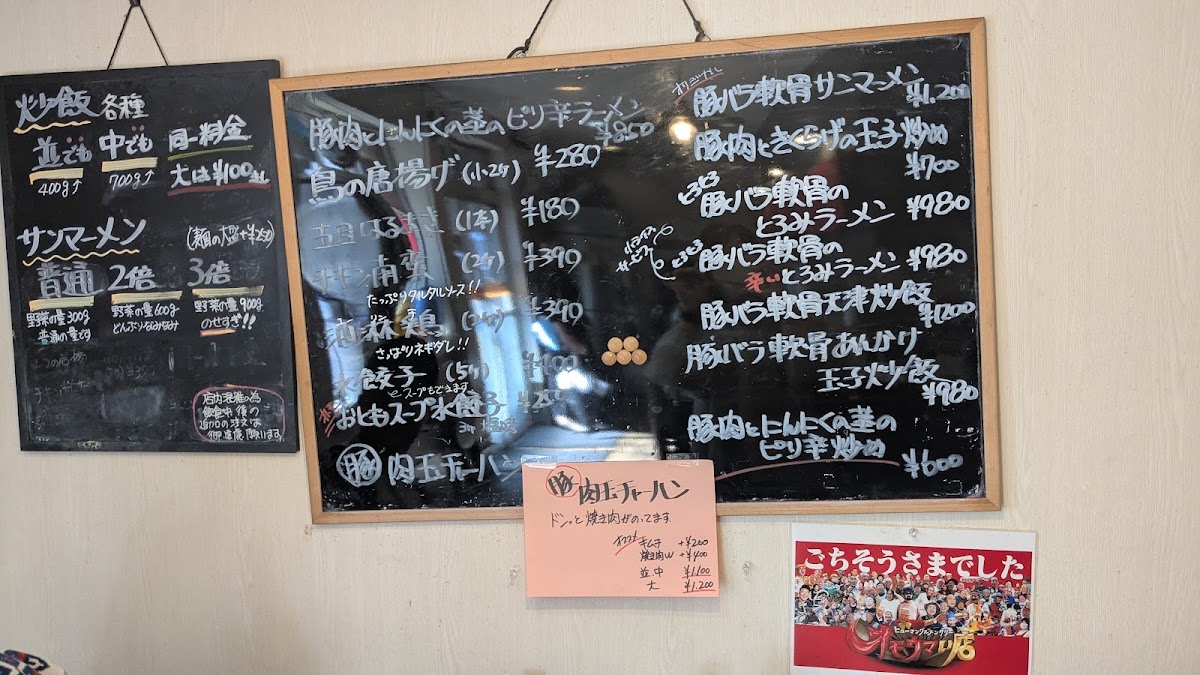 炒飯 各種
並でも 中でも 同一料金
400g↑ 700g↑ 大は¥100
サンマーメン
普通 2倍 3倍
野菜の量300g 野菜の量600g 野菜の量900g
普通の量です どんぶりなみなみ のせすぎ!!
店内混雑の為
飲食中後の
追加の注文は
御遠慮願います
豚肉とにんにくの茎のピリ辛ラーメン
¥850
鳥の唐揚げ(小2ケ) ¥280
五目はるまき(1本) ¥180
チキン南蛮(2ケ) ¥390
たっぷりタルタルソース!!
鶏 ¥390
さっぱりネギダレ!!
水餃子(5ケ)
スープもできます
おともスープ水餃子
豚 肉玉チャーハン
豚バラ軟骨サンマーメン
¥1.200
豚肉ときくらげの玉子炒め
¥700
とろとろ 豚バラ軟骨の
とろみラーメン ¥980
とろとろ 豚バラ軟骨の
辛いとろみラーメン ¥980
豚バラ軟骨天津炒飯
豚バラ軟骨あんかけ
玉子炒飯
¥980
豚肉とにんにくの茎の
ピリ辛炒め
¥600
豚 肉玉チャーハン
ドンッと焼き肉がのってます
オススメ キムチ +¥200
焼き肉W +¥400
並.中 ¥1.100
大 ¥1.200
ごちそうさまでした
ヒューマングルメンタリー
オモウマい店